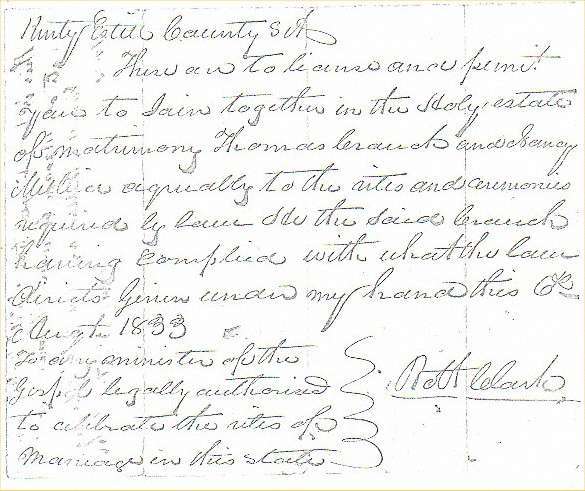 Kenty Estill County Sct
These are to license and permit
you to Join together in the Holy estate
of matrimony Thomas Crouch and Nancy
agreeally to the rites and ceremonies
required by law He the Said Crouch
having Complied with what the law
diricts Given under my hand this 6th
August 1833
To any minister of the
Gospel legally authorised
to celibrate the rites of
Marriage in this state
Robt Clark